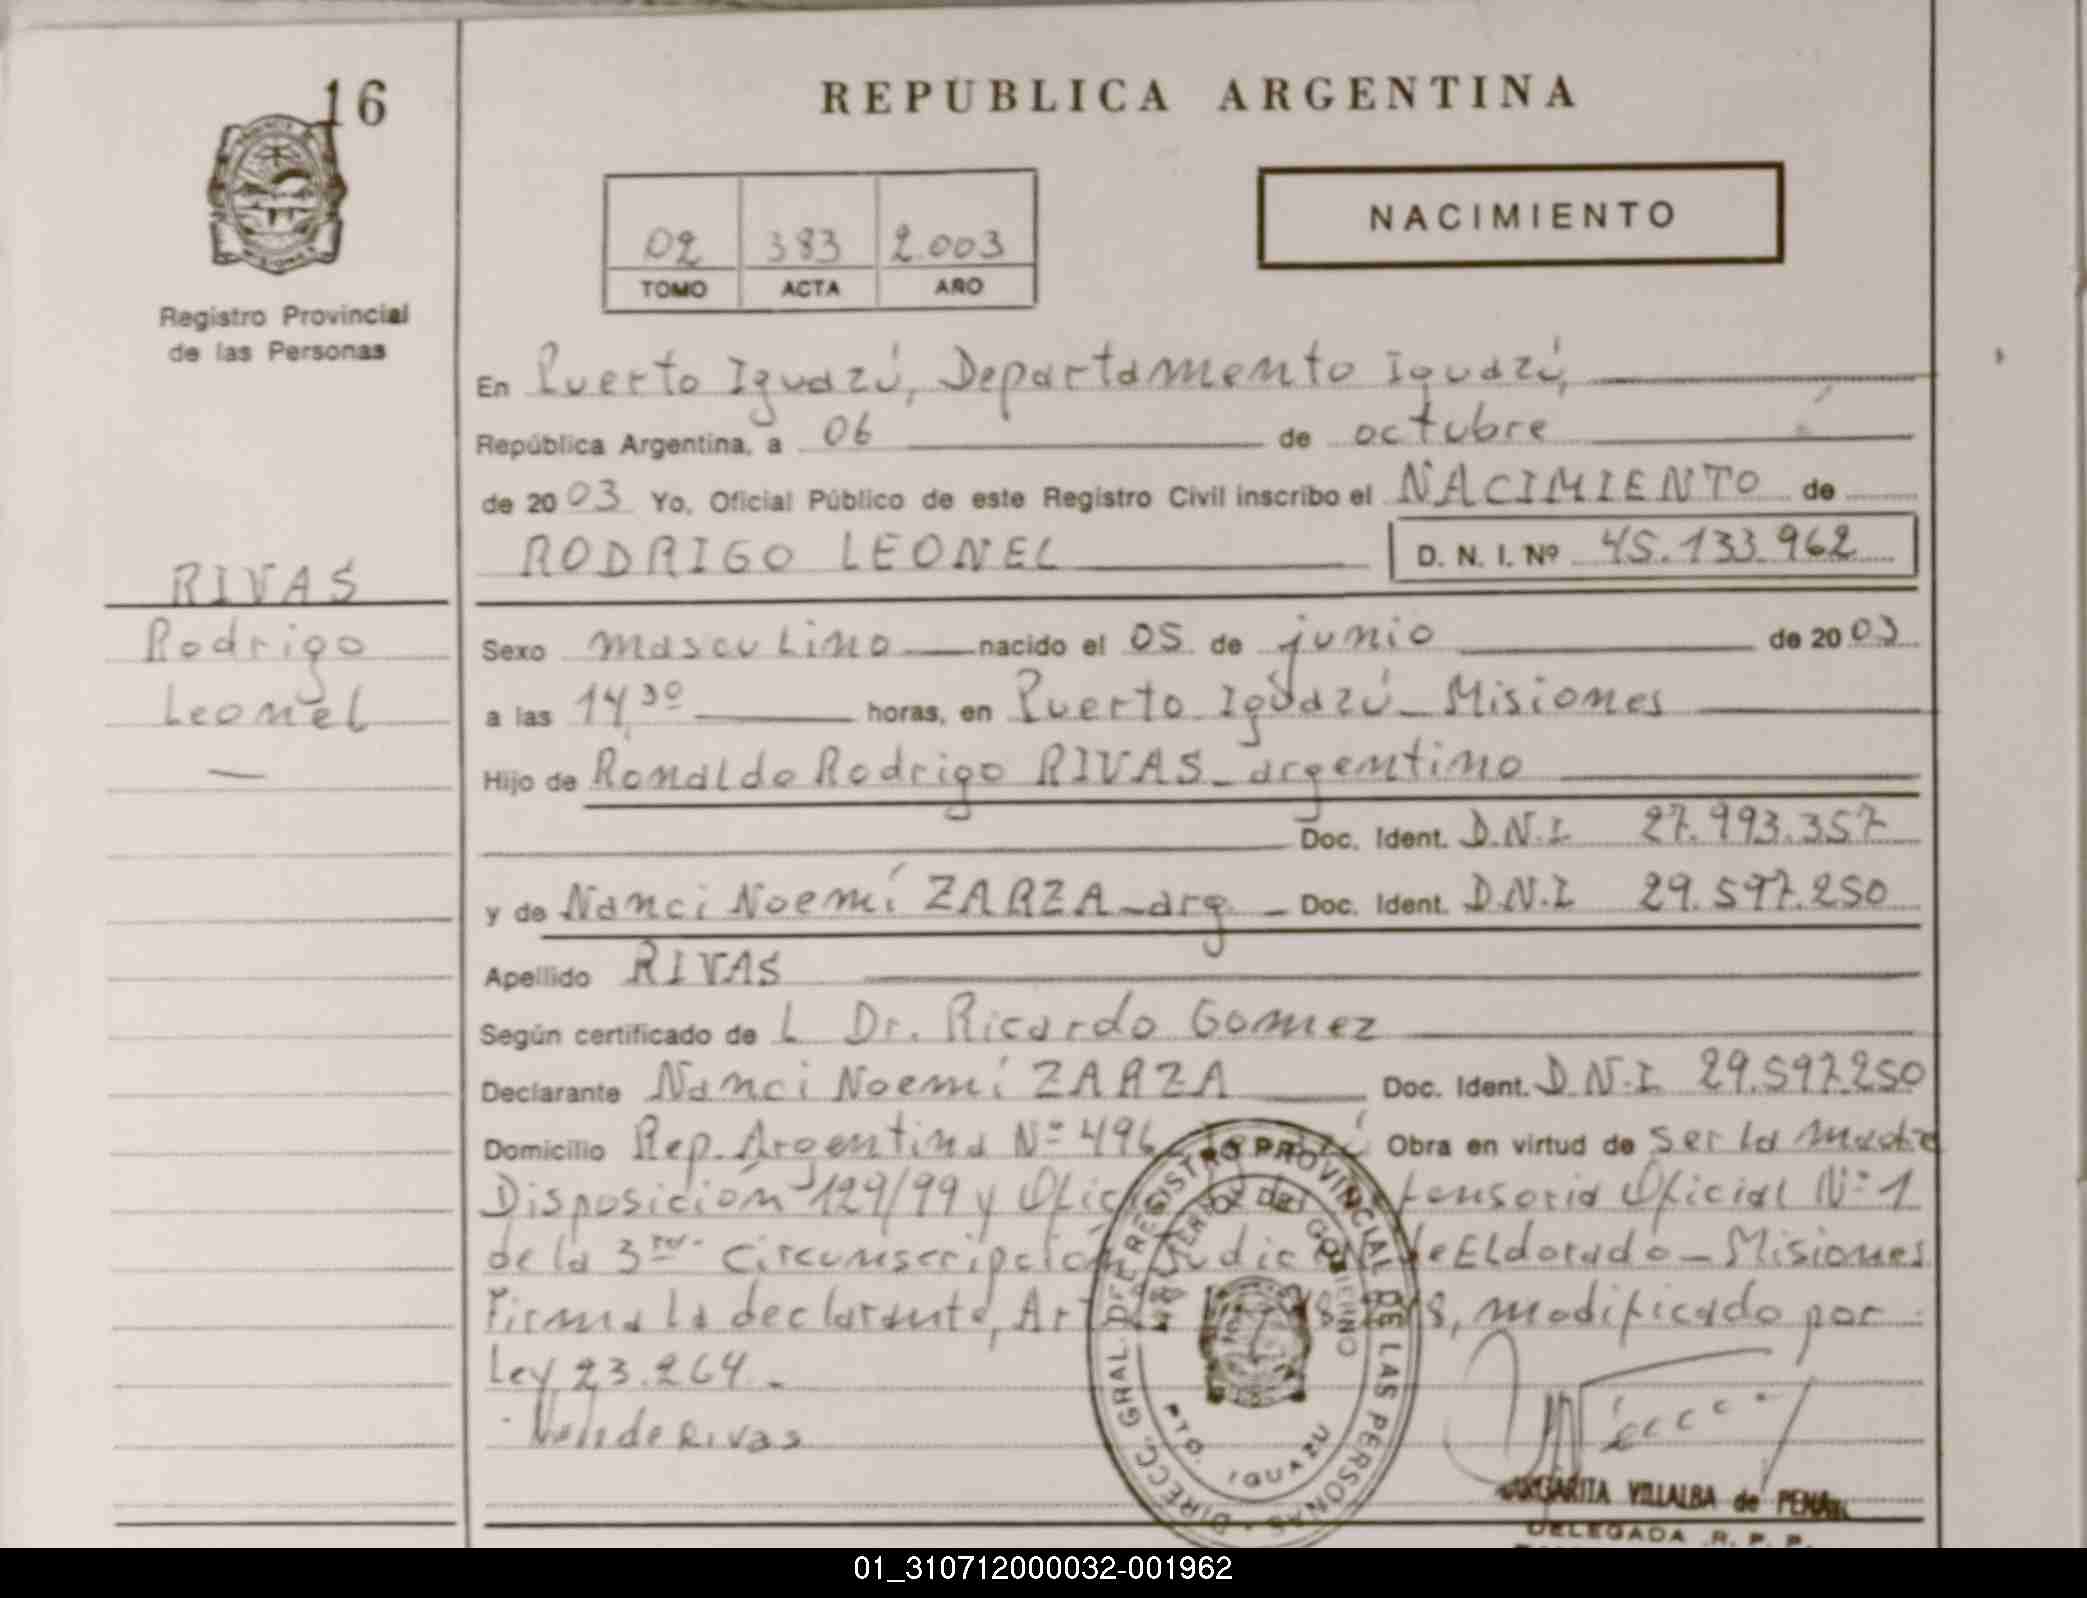 16
REPUBLICA ARGENTINA
NACIMIENTO
02 383 2.003
TOMO ACTA AÑO
Registro Provincial
de las Personas
En Puerto Iguazú, Departamento Iguazú,
República Argentina, a 06 de octubre
de 2003 Yo, Oficial Público de este Registro Civil inscribo el NACIMIENTO de
RODRIGO LEONEL D. N. I. Nº 45.133.962
RIVAS
Rodrigo
Leonel
Sexo masculino nacido el 05 de junio de 2003
a las 14,30 horas, en Puerto Iguazú - Misiones
Hijo de Ronaldo Rodrigo RIVAS - argentino
Doc. Ident. D.N.I 27.993.357
y de Nanci Noemí ZARZA - arg. - Doc. Ident. D.N.I 29.597.250
Apellido RIVAS
Según certificado de L Dr. Ricardo Gomez
Declarante Nanci Noemí ZARZA Doc. Ident. D.N.I 29.597.250
Domicilio Rep. Argentina Nº 496 Obra en virtud de ser la madre
Disposición 129/99 y Oficial Nº 1
de la 3ra. Circunscripción Judicial de Eldorado - Misiones
Firma la declarante, Art. modificado por
Ley 23.264.-
de Rivas
DIRECC. GRAL. DE REGISTRO PROVINCIAL DE LAS PERSONAS
GOBIERNO
PTO. IGUAZU
MARGARITA VILLALBA de PENA
DELEGADA R. P. P.
01_310712000032-001962